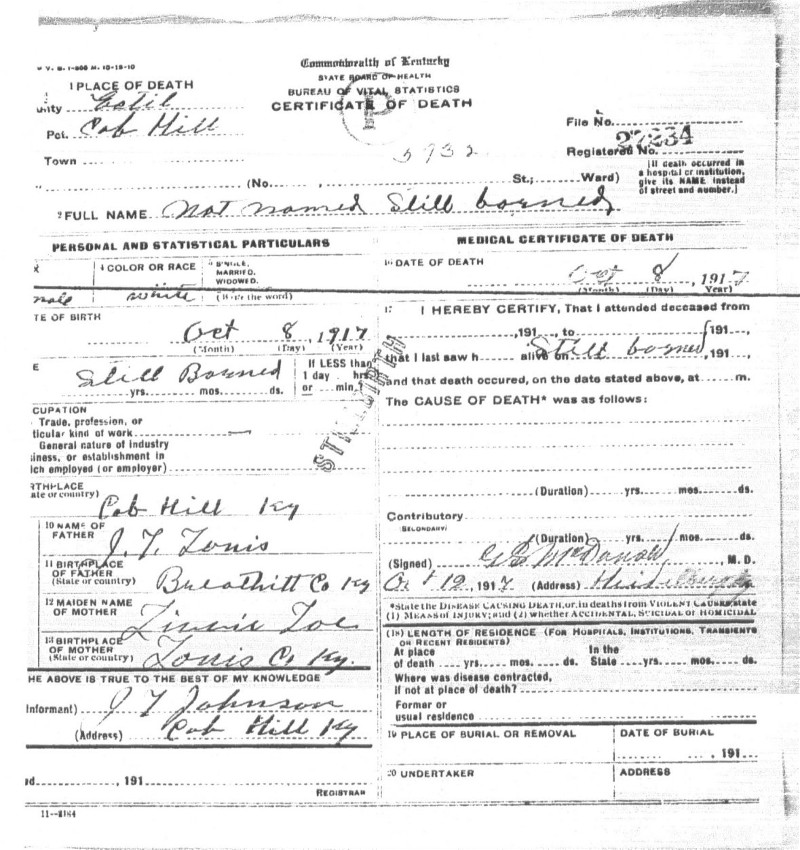 V. S. 1-500 M. 10-18-10
Commonwealth of Kentucky
STATE BOARD OF HEALTH
BUREAU OF VITAL STATISTICS
CERTIFICATE OF DEATH
1 PLACE OF DEATH
unty Estil
Pct. Cob Hill
Town
P
5932
File No.
Registered No. 27234
(No. , St.; Ward)
[If death occurred in
a hospital or institution,
give its NAME instead
of street and number.]
2 FULL NAME Not named Still borned
PERSONAL AND STATISTICAL PARTICULARS
X
4 COLOR OR RACE
5 SINGLE,
MARRIED,
WIDOWED,
male white (Write the word)
TE OF BIRTH
Oct 8, 1917
(Month) (Day) (Year)
E
Still Borned
yrs. mos. ds.
If LESS than
1 day hrs.
or min.
STILLBIRTH
CUPATION
Trade, profession, or
ticular kind of work
General nature of industry
siness, or establishment in
ich employed (or employer)
RTHPLACE
ate or country)
Cob Hill Ky
10 NAME OF
FATHER
J. T. Tonis
11 BIRTHPLACE
OF FATHER
(State or country)
Breathitt Co Ky
12 MAIDEN NAME
OF MOTHER
13 BIRTHPLACE
OF MOTHER
(State or country)
Co Ky.
HE ABOVE IS TRUE TO THE BEST OF MY KNOWLEDGE
Informant) J T Johnson
(Address) Cob Hill Ky
d. , 191
REGISTRAR
11--2184
MEDICAL CERTIFICATE OF DEATH
16 DATE OF DEATH
Oct 8, 1917
(Month) (Day) (Year)
17 I HEREBY CERTIFY, That I attended deceased from
,191 , to 191 ,
that I last saw h alive on Still borned, 191 ,
and that death occured, on the date stated above, at m.
The CAUSE OF DEATH* was as follows:
(Duration) yrs. mos. ds.
Contributory
(SECONDARY)
(Duration) yrs. mos. ds.
(Signed) McDonald, M. D.
Oct 12, 1917 (Address)
*State the DISEASE CAUSING DEATH, or, in deaths from VIOLENT CAUSES, state
(1) MEANS OF INJURY; and (2) whether ACCIDENTAL, SUICIDAL or HOMICIDAL
(18) LENGTH OF RESIDENCE (FOR HOSPITALS, INSTITUTIONS, TRANSIENTS
OR RECENT RESIDENTS)
At place In the
of death yrs. mos. ds. State yrs. mos. ds.
Where was disease contracted,
if not at place of death?
Former or
usual residence
19 PLACE OF BURIAL OR REMOVAL
DATE OF BURIAL
, 191
20 UNDERTAKER
ADDRESS